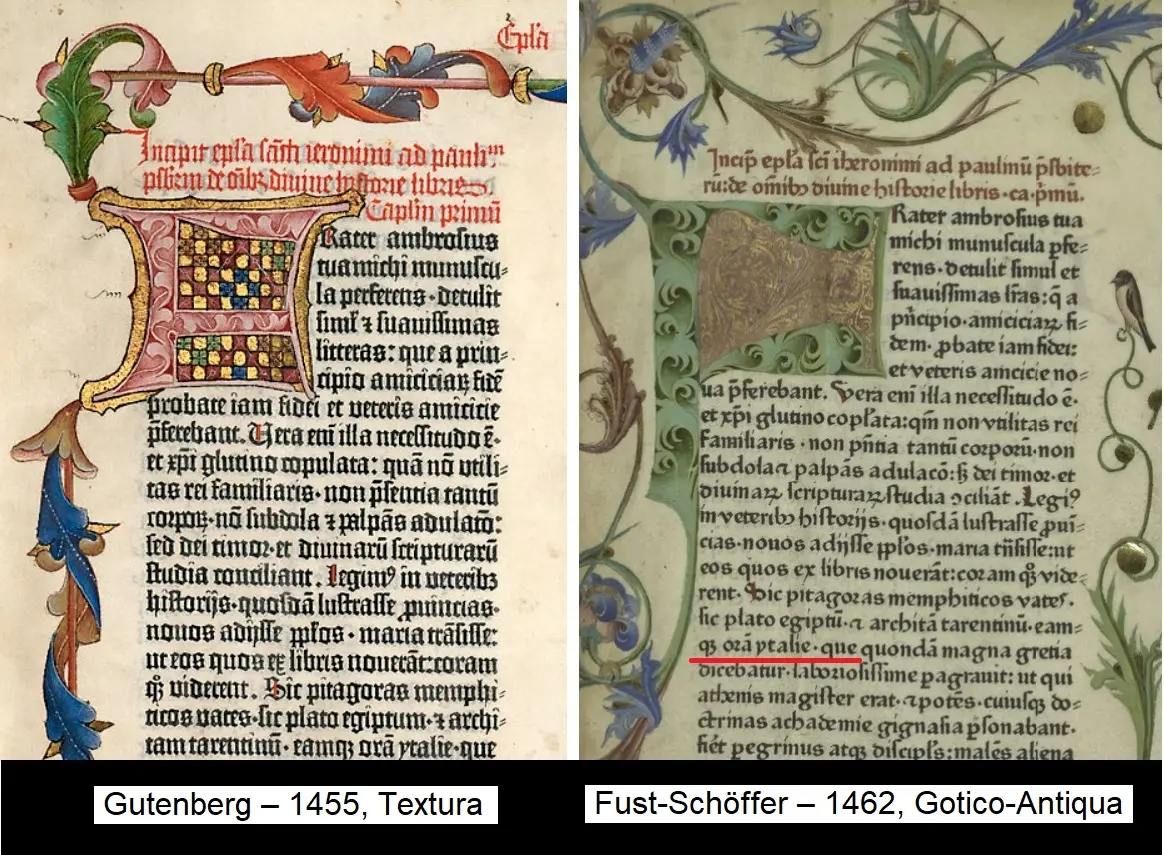 Epl'a
Incipit epl'a sancti ieronimi ad paulinum
presbiterum de omnibus divine historie libris.
Capitulum primum
Frater ambrosius
tua michi munuscu=
la perferens · detulit
siml' ⁊ suauissimas
litteras: que a prin=
cipio amiciciaꝝ fidē
probate iam fidei et veteris amicicie
p̄ferebant. Vera eni illa necessitudo ē·
et xp̄i glutino copulata: quā nō utili=
tas rei familiaris · non p̄sentia tantū
corpoꝝ · nō subdola ⁊ palpās adulatō:
sed dei timor · et diuinarū scripturarū
studia conciliant. Legimꝰ in ueteribꝫ
historijs · quosdā lustrasse ꝓuincias ·
nouos adijsse pp̄los · maria trāsisse:
ut eos quos ex libris nouerāt: coram
qꝫ viderent. Sic pitagoras memphi=
ticos uates · sic plato egiptum · ⁊ archi=
tam tarentinū · eamqꝫ orā ytalie · que
Incip̄ ep̄la sc̄i iheronimi ad paulinū p̄sbite=
rū: de om̄ibꝫ diuine historie libris · ca · p̄mū.
Rater ambrosius tua
michi munuscula ꝑfe=
rens · detulit simul et
suauissimas l̄ras: q̄ a
pn̄cipio · amiciciaꝝ fi=
dem · ꝓbate iam fidei:
et veteris amcicie no=
ua p̄ferebant. Vera eni illa necessitudo ē·
et xp̄i glutino cop̄lata: qm̄ non vtilitas rei
familiaris · non pn̄tia tantū corporū · non
subdola ⁊ palpās adulacō: sꝫ dei timor · et
diuinaꝝ scripturaꝝ studia ꝯciliāt. Legiꝰ
in veteribꝫ historijs · quosdā lustrasse ꝓui=
cias · nouos adijsse pp̄los · maria trn̄sisse: ut
eos quos ex libris nouerāt: coram qꝫ vide=
rent. Sic pitagoras memphiticos vates ·
sic plato egiptū · ⁊ architā tarentinū · eam=
qꝫ orā ytalie · que quondā magna gretia
dicebatur · laboriosissime ꝑagrauit: ut qui
athenis magister erat · ⁊ potēs · cuiusqꝫ do=
ctrinas achademie gignasia ꝑsonabant ·
fiēt ꝑegrinus atqꝫ discipl̄s: malēs aliena
Gutenberg – 1455, Textura
Fust-Schöffer – 1462, Gotico-Antiqua